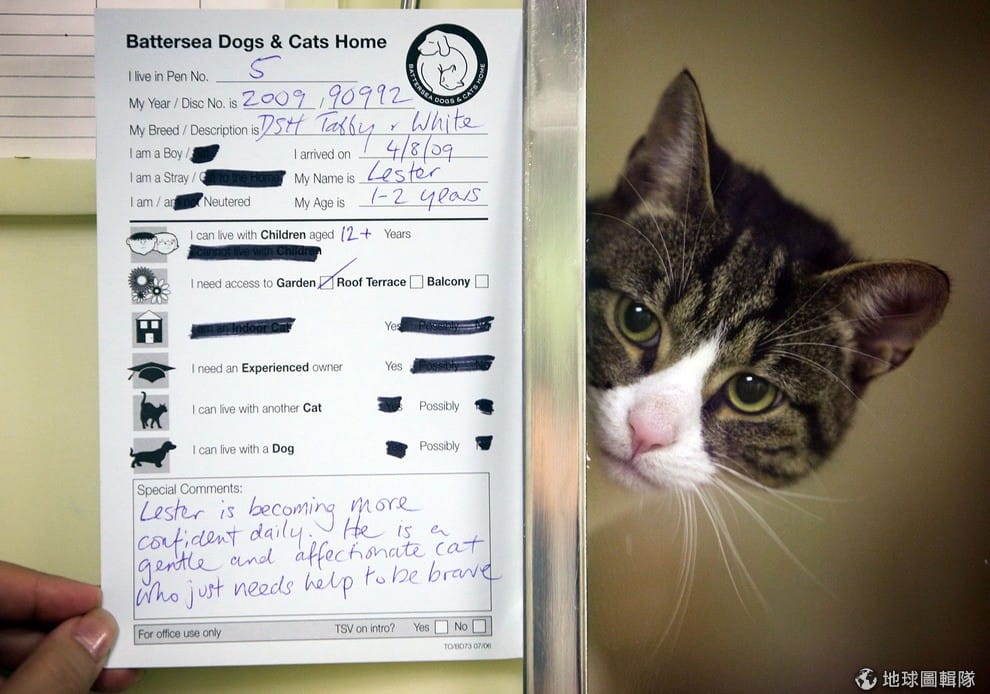 Battersea Dogs & Cats Home
BATTERSEA DOGS & CATS HOME
I live in Pen No. 5
My Year / Disc No. is 2009, 90992
My Breed / Description is DSH Tabby & White
I am a Boy /
I arrived on 4/8/09
I am a Stray / Gift to the Home
My Name is Lester
I am / am not Neutered
My Age is 1-2 years
I can live with Children aged 12+ Years
I cannot live with Children
I need access to Garden Roof Terrace Balcony
I am an Indoor Cat Yes Possibly No
I need an Experienced owner Yes Possibly No
I can live with another Cat Yes Possibly
I can live with a Dog Possibly
Special Comments:
Lester is becoming more
confident daily. He is a
gentle and affectionate cat
who just needs help to be brave
For office use only TSV on intro? Yes No
TO/BD73 07/06
地球圖輯隊